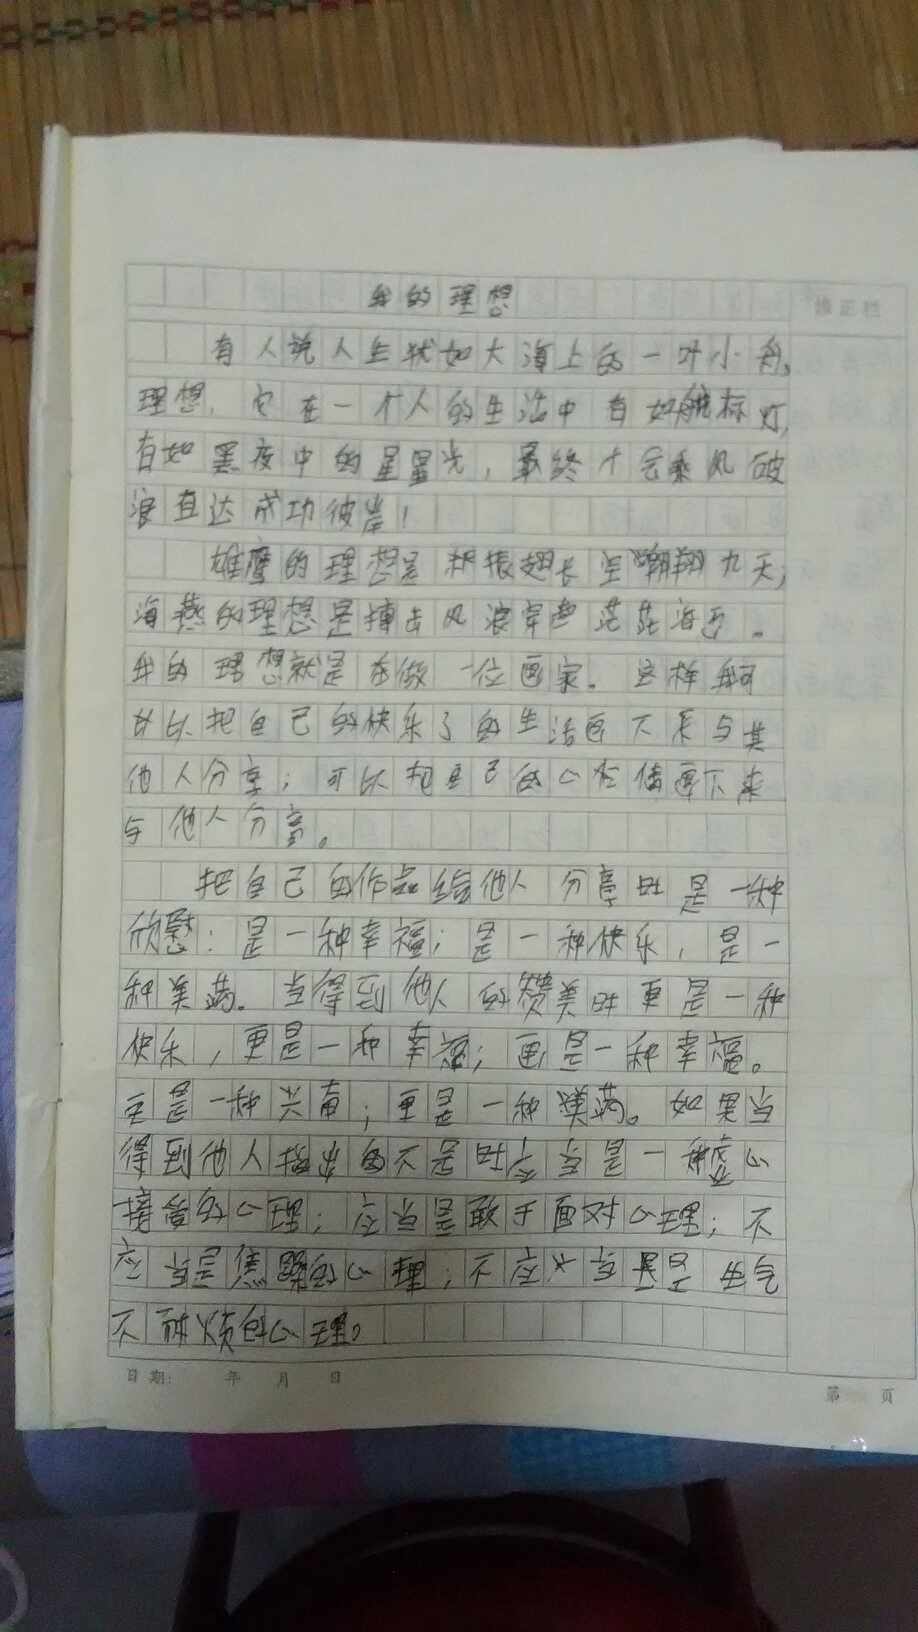 我的理想
修正栏
有人说人生犹如大海上的一叶小舟。
理想，它在一个人的生活中有如航标灯，
有如黑夜中的星星光，最终才会乘风破
浪直达成功彼岸！
雄鹰的理想是积振翅长空翱翔九天；
海燕的理想是搏击风浪穿越茫茫海面。
我的理想就是在做一位画家。这样我可
以以把自己的快乐了的生活画下来与其
他人分享；可以把自己的心性情画下来
与他人分享。
把自己的作品给他人分享时是一种
欣慰：是一种幸福；是一种快乐，是一
种美满。当得到他人的赞美时更是一种
快乐，更是一种幸；更是一种幸福。
更是一种兴奋；更是一种美满。如果当
得到他人是一种心
心理；心理；不
心理；
不耐烦的心理。
日期： 年 月 日
第 页